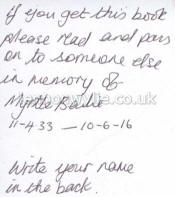 if you get this book
please read and pass
on to someone else
in memory of
Myrtle
11-4 33 — 10-6-16
Write your name
in the back.